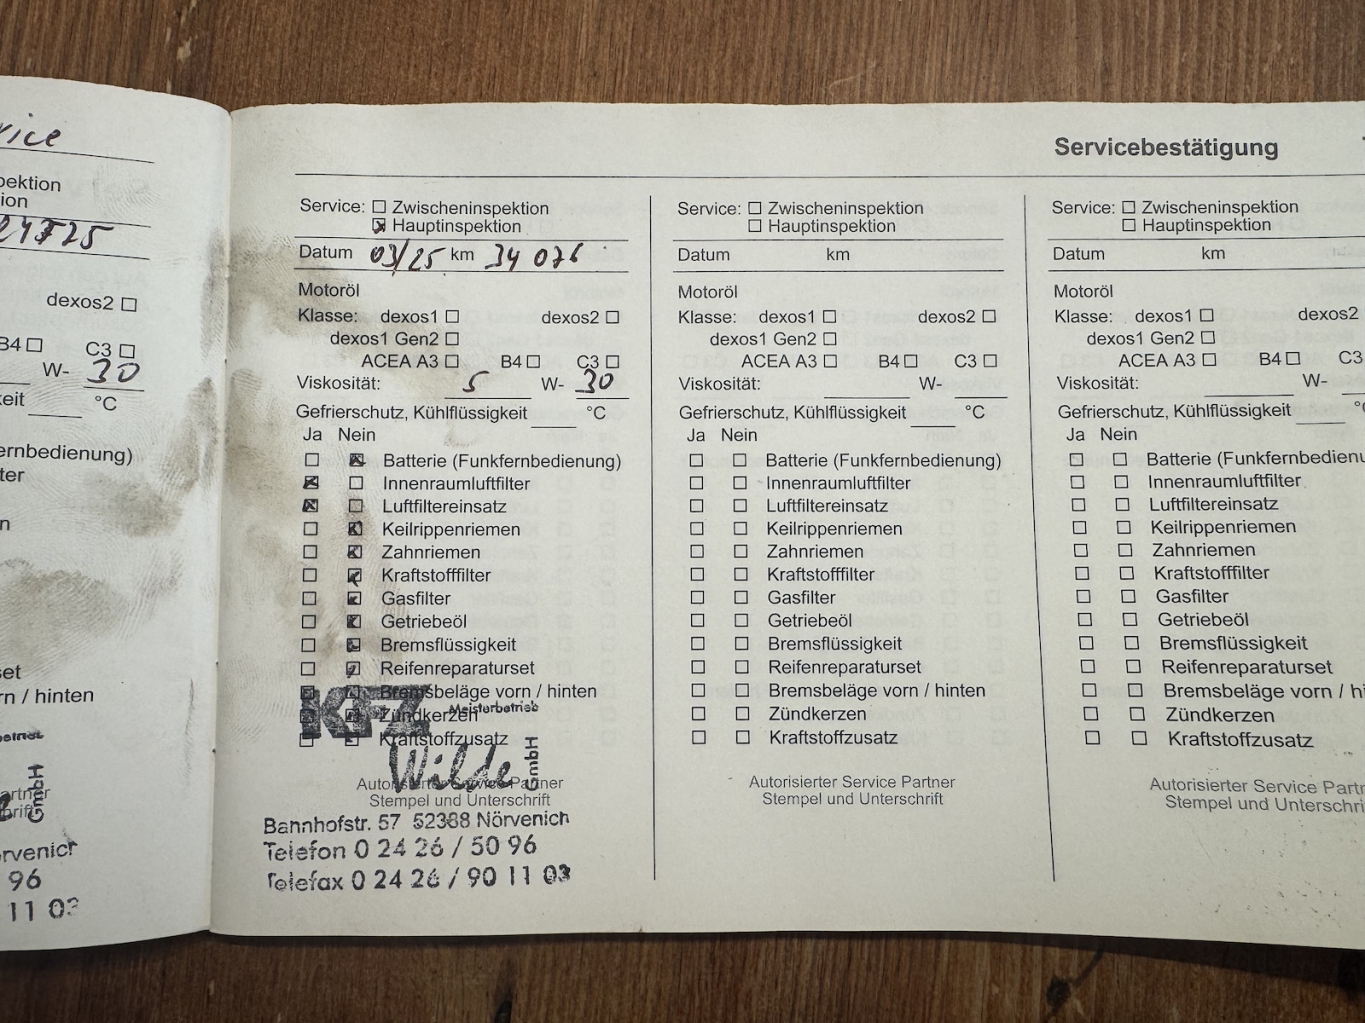 vice
pektion
ion
24725
dexos2
B4 C3
W- 30
keit °C
ernbedienung)
ter
n
set
rn / hinten
GmbH
artner
hrift
rvenich
96
11 03
Servicebestätigung
Service: Zwischeninspektion
Hauptinspektion
Datum 03/25 km 34 076
Motoröl
Klasse: dexos1 dexos2
dexos1 Gen2
ACEA A3 B4 C3
Viskosität: 5 W- 30
Gefrierschutz, Kühlflüssigkeit °C
Ja Nein
Batterie (Funkfernbedienung)
Innenraumluftfilter
Luftfiltereinsatz
Keilrippenriemen
Zahnriemen
Kraftstofffilter
Gasfilter
Getriebeöl
Bremsflüssigkeit
Reifenreparaturset
Bremsbeläge vorn / hinten
Zündkerzen
Kraftstoffzusatz
KFZ Meisterbetrieb
Wilde GmbH
Autorisierter Service Partner
Stempel und Unterschrift
Bahnhofstr. 57 52388 Nörvenich
Telefon 0 24 26 / 50 96
Telefax 0 24 26 / 90 11 03
Service: Zwischeninspektion
Hauptinspektion
Datum km
Motoröl
Klasse: dexos1 dexos2
dexos1 Gen2
ACEA A3 B4 C3
Viskosität: W-
Gefrierschutz, Kühlflüssigkeit °C
Ja Nein
Batterie (Funkfernbedienung)
Innenraumluftfilter
Luftfiltereinsatz
Keilrippenriemen
Zahnriemen
Kraftstofffilter
Gasfilter
Getriebeöl
Bremsflüssigkeit
Reifenreparaturset
Bremsbeläge vorn / hinten
Zündkerzen
Kraftstoffzusatz
Autorisierter Service Partner
Stempel und Unterschrift
Service: Zwischeninspektion
Hauptinspektion
Datum km
Motoröl
Klasse: dexos1 dexos2
dexos1 Gen2
ACEA A3 B4 C3
Viskosität: W-
Gefrierschutz, Kühlflüssigkeit °
Ja Nein
Batterie (Funkfernbedienu
Innenraumluftfilter
Luftfiltereinsatz
Keilrippenriemen
Zahnriemen
Kraftstofffilter
Gasfilter
Getriebeöl
Bremsflüssigkeit
Reifenreparaturset
Bremsbeläge vorn / hi
Zündkerzen
Kraftstoffzusatz
Autorisierter Service Part
Stempel und Unterschrif